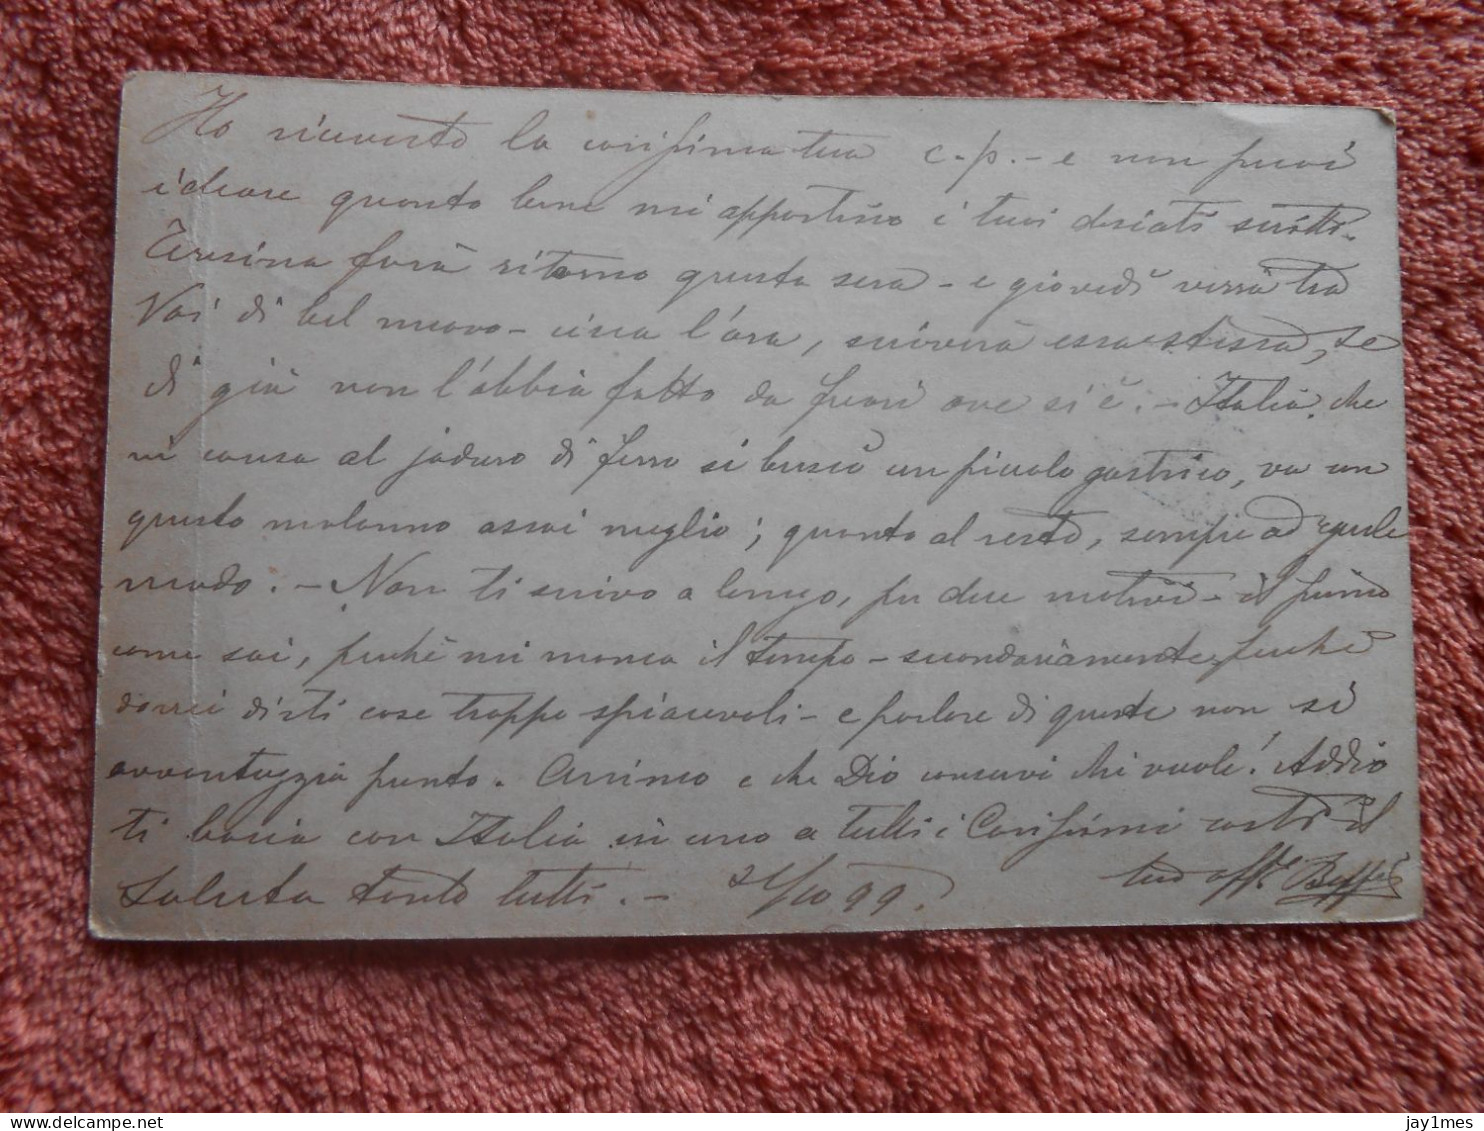 Ho ricevuto la carissima tua c. p. - e non puoi
ideare quanto bene mi apportino i tuoi desiati scritti.
Teresina farà ritorno questa sera - e giovedì verrà tra
Voi di bel nuovo - circa l'ora, scriverà essa stessa, se
di già non l'abbia fatto da fuori ove si è. - Italia, che
in causa al joduro di ferro si buscò un piccolo gastrico, va un
questo malanno assai meglio; quanto al resto, sempre ad eguale
modo. - Non ti scrivo a lungo, per due motivi - il primo
come sai, perchè mi manca il tempo - secondariamente, perchè
dovrei dirti cose troppo spiacevoli - e parlare di queste non si
avvantaggia punto. Arrivo e che Dio conservi chi vuole! Addio
ti bacia con Italia in uno a tutti i Carissimi costì il
Saluta tanto tutti. - 21/10 99. tuo aff.
delcampe.net
jay1mes